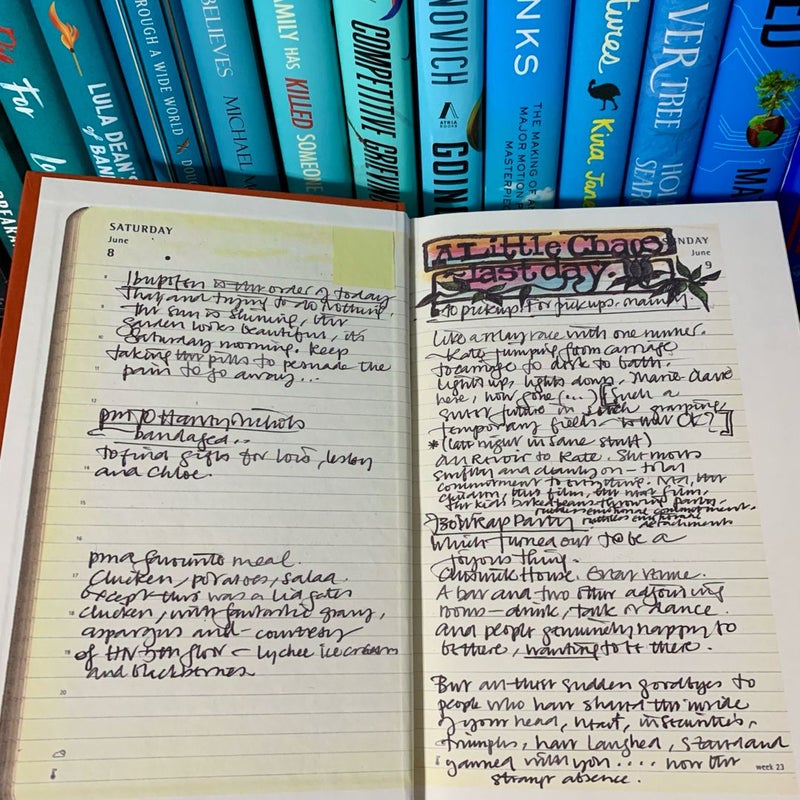 For
LULA DEAN'S
of BAN
THROUGH A WIDE WORLD
DOU
BELIEVES
MICHAEL
FAMILY HAS KILLED SOMEONE
COMPETITIVE GRIEVING
NOVICH
ATRIA
BOOKS
GOIN
NKS
THE MAKING OF A
MAJOR MOTION
MASTERPIE
tures
Kira Jane
VER TREE
HO
SEAR
ED
MA
SATURDAY
June
8
Ibuprofen is the order of today
That and trying to do nothing.
The sun is shining, the
garden looks beautiful, it's
Saturday morning. Keep
taking the pills to persuade the
pain to go away...
pm To Harvey Nichols
bandaged..
To find gifts for Lois, Lesley
and Chloe.
pm a favourite meal.
Chicken, potatoes, salad.
Except this was a Lidgates
chicken, with fantastic gravy,
asparagus and – courtesy
of HN 5th floor – lychee ice cream
and blackberries
9
11
12
14
15
16
17
18
19
20
A Little Chaos
last day.
SUNDAY
June
9
To pickup! For pickups, mainly.
Like a relay race with one runner.
Kate jumping from carriage
to carriage to desk to bath.
Lights up, lights down, Marie Claire
here, now gone (...) [Such a
future in such grasping
temporary fields – is that OK?]
*(late night insane stuff)
Au Revoir to Kate. She moves
swiftly and cleanly on – total
commitment to everything. Ned, the
children, this film, the next film,
the kids' baked beans-throwing party,
ruthless emotional commitment.
ruthless emotional
detachments
730 Wrap Party
Which turned out to be a
joyous thing.
Chiswick House. Great venue.
A bar and two other adjoining
rooms – drink, talk or dance.
and people genuinely happy to
be there, wanting to be there.
But all these sudden goodbyes to
people who have shared the inside
of your head, heart, insecurities,
triumphs, have laughed, stared and
yawned with you.... now the
strange absence.
week 23